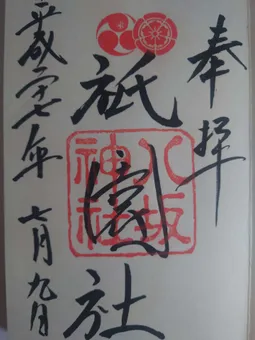 奉拝
祇園社
八坂神社
平成二十七年 七月九日